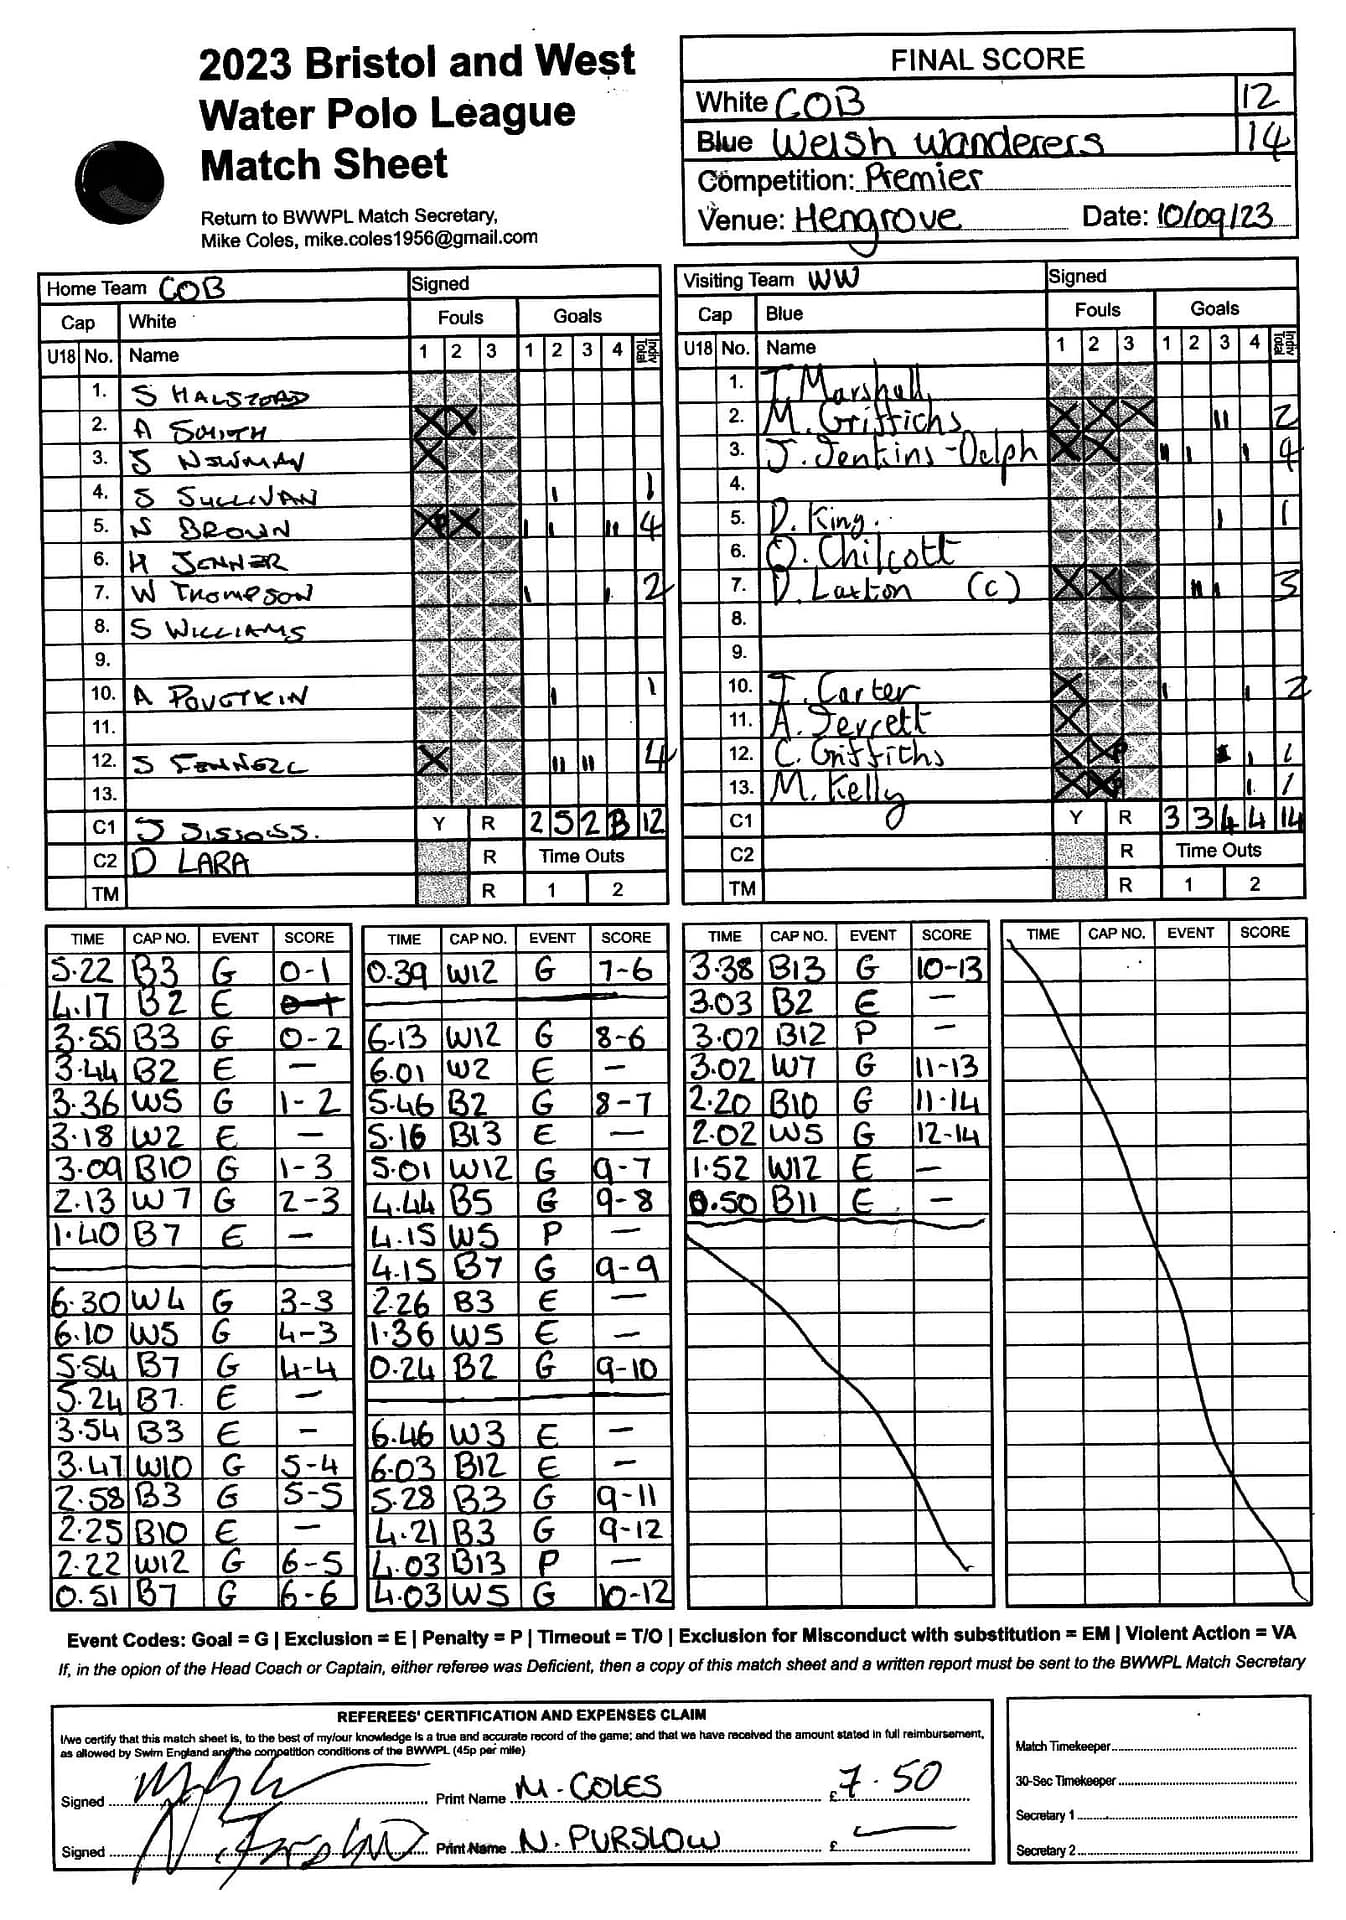 2023 Bristol and West
Water Polo League
Match Sheet
Return to BWWPL Match Secretary,
Mike Coles, mike.coles1956@gmail.com
FINAL SCORE
White COB 12
Blue Welsh Wanderers 14
Competition: Premier
Venue: Hengrove Date: 10/09/23
Home Team COB Signed
Cap White Fouls Goals
U18 No. Name 1 2 3 1 2 3 4 Indiv Total
1. S HALSTORD
2. A SMITH X X
3. S NEWMAN X
4. S SULLIVAN I 1
5. N BROWN XP X I I II 4
6. H JENNER
7. W THOMPSON I I 2
8. S WILLIAMS
9.
10. A POUGTKIN I 1
11.
12. S FENNELL X II II 4
13.
C1 J Y R 2 5 2 3 12
C2 D LARA R Time Outs
TM R 1 2
Visiting Team WW Signed
Cap Blue Fouls Goals
U18 No. Name 1 2 3 1 2 3 4 Indiv Total
1. T Marshall
2. M. Griffichs X X X II 2
3. J. Jenkins-Delph X X II I I 4
4.
5. D. King. I 1
6. O. Chilcott
7. D. Laxton (c) X X II I 3
8.
9.
10. I. Carter X I I 2
11. A. Jerrett X
12. C. Griffiths X XP I 1
13. M. Kelly X XP I 1
C1 Y R 3 3 4 4 14
C2 R Time Outs
TM R 1 2
TIME CAP NO. EVENT SCORE
5.22 B3 G 0-1
4.17 B2 E 0-1
3.55 B3 G 0-2
3.44 B2 E –
3.36 W5 G 1-2
3.18 W2 E –
3.09 B10 G 1-3
2.13 W7 G 2-3
1.40 B7 E –
6.30 W4 G 3-3
6.10 W5 G 4-3
5.54 B7 G 4-4
5.24 B7. E –
3.54 B3 E –
3.47 W10 G 5-4
2.58 B3 G 5-5
2.25 B10 E –
2.22 W12 G 6-5
0.51 B7 G 6-6
TIME CAP NO. EVENT SCORE
0.39 W12 G 7-6
6.13 W12 G 8-6
6.01 W2 E –
5.46 B2 G 8-7
5.16 B13 E –
5.01 W12 G 9-7
4.44 B5 G 9-8
4.15 W5 P –
4.15 B7 G 9-9
2.26 B3 E –
1.36 W5 E –
0.24 B2 G 9-10
6.46 W3 E –
6.03 B12 E –
5.28 B3 G 9-11
4.21 B3 G 9-12
4.03 B13 P –
4.03 W5 G 10-12
TIME CAP NO. EVENT SCORE
3.38 B13 G 10-13
3.03 B2 E –
3.02 B12 P –
3.02 W7 G 11-13
2.20 B10 G 11-14
2.02 W5 G 12-14
1.52 W12 E –
0.50 B11 E –
TIME CAP NO. EVENT SCORE
Event Codes: Goal = G | Exclusion = E | Penalty = P | Timeout = T/O | Exclusion for Misconduct with substitution = EM | Violent Action = VA
If, in the opion of the Head Coach or Captain, either referee was Deficient, then a copy of this match sheet and a written report must be sent to the BWWPL Match Secretary
REFEREES' CERTIFICATION AND EXPENSES CLAIM
I/we certify that this match sheet is, to the best of my/our knowledge is a true and accurate record of the game; and that we have received the amount stated in full reimbursement,
as allowed by Swim England and the competition conditions of the BWWPL (45p per mile)
Signed Print Name M. COLES £ 7.50
Signed Print Name N. PURSLOW £ –
Match Timekeeper
30-Sec Timekeeper
Secretary 1
Secretary 2